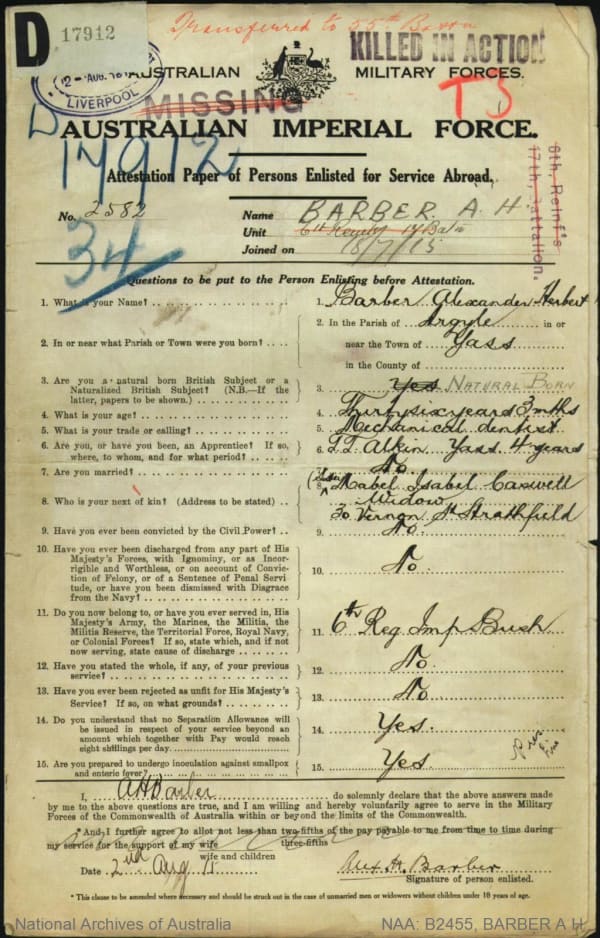 Transferred to 55th Battn
D
17912
KILLED IN ACTION
2-AUG.
LIVERPOOL
AUSTRALIAN MILITARY FORCES.
MISSING
TJ
D
17912
AUSTRALIAN IMPERIAL FORCE.
Attestation Paper of Persons Enlisted for Service Abroad.
6th, Reinf's
17th, Battalion.
No. 2582
Name BARBER. A. H.
Unit 17 Batn
Joined on 18/7/15
34
Questions to be put to the Person Enlisting before Attestation.
1. What is your Name? 1. Barber Alexander Herbert
2. In or near what Parish or Town were you born? 2. In the Parish of Argyle in or
near the Town of Yass
in the County of
3. Are you a natural born British Subject or a
Naturalized British Subject? (N.B.—If the
latter, papers to be shown.) 3. Yes NATURAL BORN
4. What is your age? 4. Thirtysix years 3 mths
5. What is your trade or calling? 5. Mechanical dentist
6. Are you, or have you been, an Apprentice? If so,
where, to whom, and for what period? 6. Atkin Yass 4 years
7. Are you married? 7. No.
8. Who is your next of kin? (Address to be stated) 8. Mabel Isabel Caswell
Widow
30 Vernon St Strathfield
9. Have you ever been convicted by the Civil Power? 9. No.
10. Have you ever been discharged from any part of His
Majesty's Forces, with Ignominy, or as Incor-
rigible and Worthless, or on account of Convic-
tion of Felony, or of a Sentence of Penal Servi-
tude, or have you been dismissed with Disgrace
from the Navy? 10. No.
11. Do you now belong to, or have you ever served in, His
Majesty's Army, the Marines, the Militia, the
Militia Reserve, the Territorial Force, Royal Navy,
or Colonial Forces? If so, state which, and if not
now serving, state cause of discharge 11. 6th Reg Imp Bush
12. Have you stated the whole, if any, of your previous
service? 12. No
13. Have you ever been rejected as unfit for His Majesty's
Service? If so, on what grounds? 13. No
14. Do you understand that no Separation Allowance will
be issued in respect of your service beyond an
amount which together with Pay would reach
eight shillings per day. 14. Yes.
15. Are you prepared to undergo inoculation against smallpox
and enteric fever? 15. Yes
I, AHBarber do solemnly declare that the above answers made
by me to the above questions are true, and I am willing and hereby voluntarily agree to serve in the Military
Forces of the Commonwealth of Australia within or beyond the limits of the Commonwealth.
*And I further agree to allot not less than two-fifths of the pay payable to me from time to time during
three-fifths
my service for the support of my wife
wife and children
Date 2nd Aug 15
Alex H. Barber
Signature of person enlisted.
* This clause to be amended where necessary and should be struck out in the case of unmarried men or widowers without children under 18 years of age.
National Archives of Australia
NAA: B2455, BARBER A H